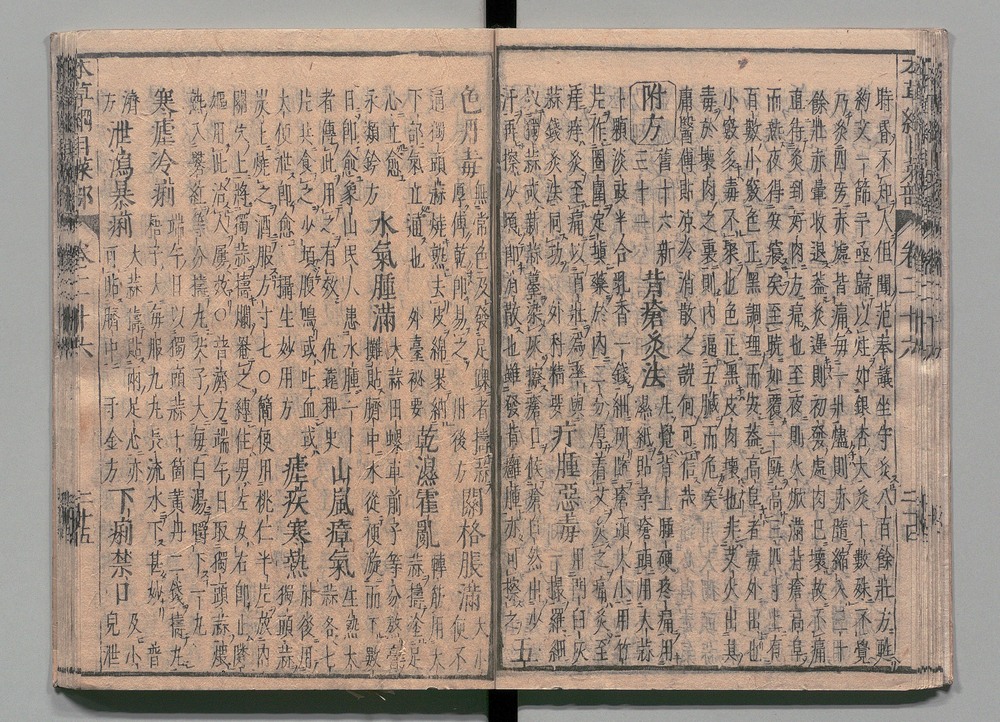 本草綱目菜部 卷二十六 二十四
時昏不知人但聞范奉議坐守灸八百餘壯方甦
約艾一篩予亟歸以炷如銀杏大灸十數殊不覺
乃灸四旁赤處皆痛每一壯燼則赤隨縮入三十
餘壯赤暈收退蓋灸遲則初發處肉已壞故不痛
直待灸到好肉方痛也至夜則火焮滿背瘡高阜
而熱夜得安寢矣至曉如覆一甌高三四寸上有
百數小竅色正黑調理而安蓋高阜者毒外出也
小竅多毒不聚也色正黑皮肉壞也非艾火出其
毒於壞肉之裏則內逼五臟而危矣
庸醫傅貼凉冷消散之說何可信哉
附方 舊十六新三十一 背瘡灸法 凡覺背上腫硬疼痛用濕紙貼尋瘡頭用大蒜
十顆淡豉半合乳香一錢細研隨瘡頭大小用竹
片作圈圍定填藥於內二分厚著艾灸之痛灸至
癢癢灸至痛以百壯為率與
蒜錢灸法同功 外科精要 疔腫惡毒 用門臼灰一撮羅細
以獨蒜或新蒜薹蘸灰擦瘡口候瘡自然出少
汗再擦少頃即消散也雖發背癰腫亦可擦之 五
色丹毒 無常色及發足踝者搗蒜厚傅乾即易之 肘後方 關格脹滿 大小便不
通獨頭蒜燒熟去皮綿裹納下部氣立通也 外臺秘要 乾濕霍亂 轉筋用大蒜搗塗足
心立愈 永類鈐方 水氣腫滿 大蒜田螺車前子等分熬膏攤貼臍中水從便漩而下數
日即愈象山民人患水腫一卜者傳此用之有效 仇遠稗史 山嵐瘴氣 生熟大蒜各七
片共食之少頃腹鳴或吐血或大便泄即愈 攝生妙用方 瘧疾寒熱 肘後用獨頭蒜
炭上燒之酒服方寸匕〇簡便用桃仁半片放內
關穴上將獨蒜搗爛罨之纏住男左女右即止鄰
嫗用此治人屢效〇普濟方端午日取獨頭蒜煨
熟入礬紅等分搗丸芡子大每白湯嚼下一丸
寒瘧冷痢 端午日以獨頭蒜十箇黃丹二錢搗丸梧子大每服九丸長流水下甚妙 普
濟方 泄瀉暴痢 大蒜搗貼兩足心亦可貼臍中 千金方 下痢禁口 及小兒泄
本草綱目菜部 卷二十六 二十五